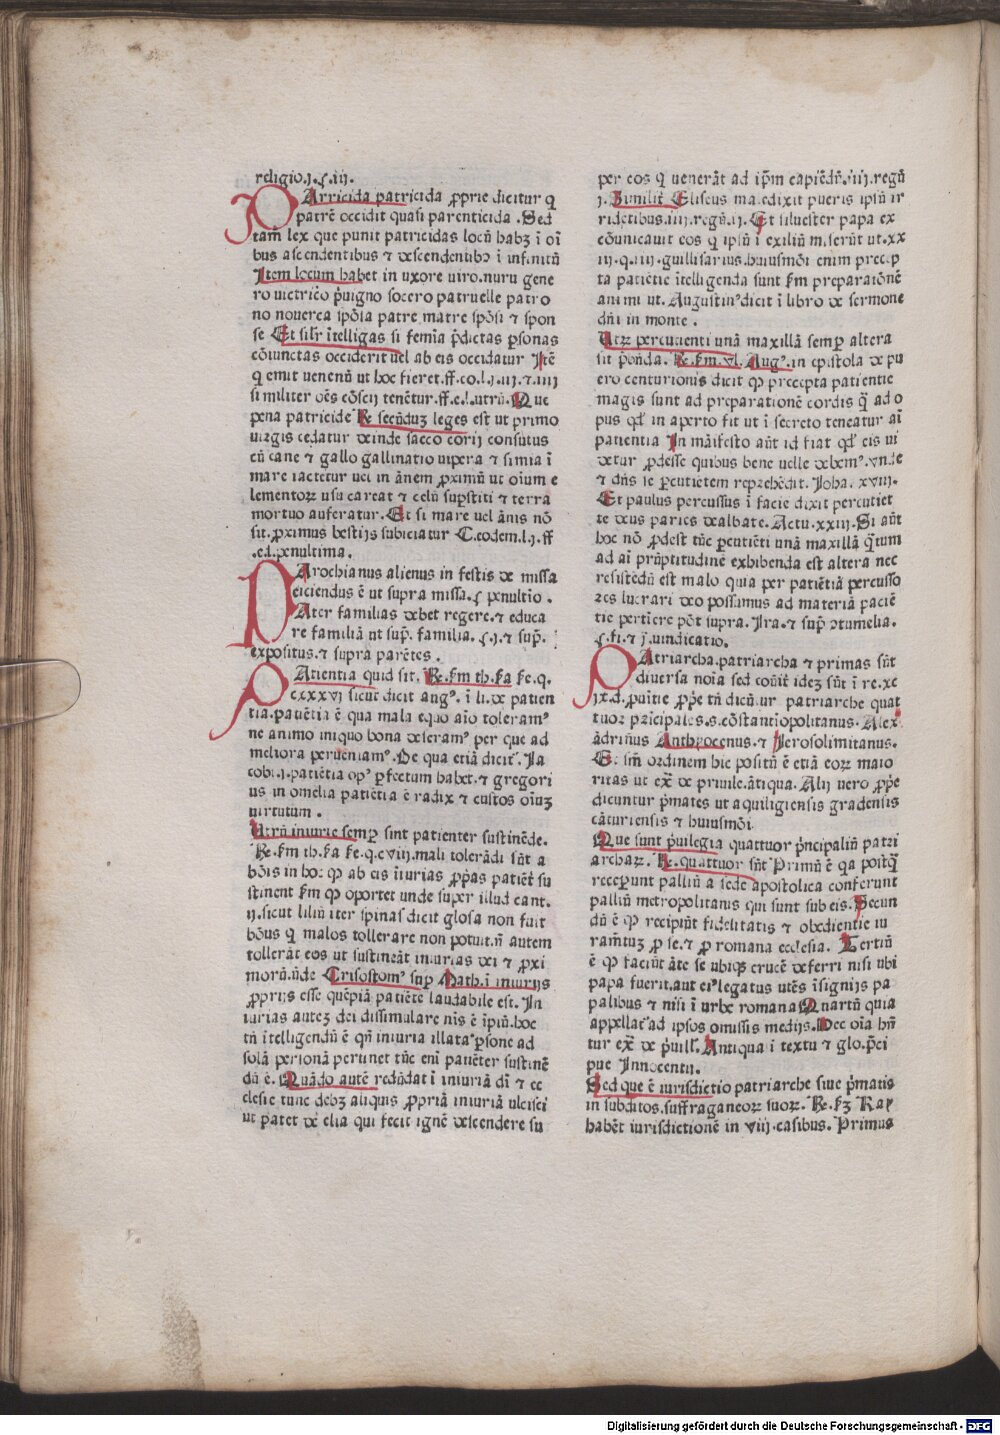 religio.j.ς.iij.
PArricida patricida ꝓprie dicitur q
patrē occidit quasi parenticida. Sed
tam̄ lex que punit patricidas locū habꝫ ī oī
bus ascendentibus ⁊ descendentibꝰ ī infinitū
Item locum habet in uxore uiro.nuru gene
ro uictrico p̄uigno socero patruelle patro
no nouerca spōsa patre matre spōsi ⁊ spon
se Et silr̄ ītelligas si femīa p̄dictas ꝑsonas
cōiunctas occiderit uel ab eis occidatur Itē
q emit uenenū ut hoc fieret.ff.eo.l.j.iij.⁊.iiij
similiter oēs cōscij tenētur.ff.e.l.utrū. Que
pena patricide ℞ secūduꝫ leges est ut primo
uirgis cedatur deinde sacco corij consutus
cū cane ⁊ gallo gallinatio uipera ⁊ simia ī
mare iactetur uel in ānem ꝓximū ut oīum e
lementoꝝ usu careat ⁊ celū suꝑstiti ⁊ terra
mortuo auferatur. Et si mare uel ānis nō
sit.ꝓximus bestijs subiciatur C.eodem.l.j.ff
.ed.penultima.
PArochianus alienus in festis de missa
eiciendus ē ut supra missa.ς penultio.
PAter familias debet regere.⁊ educa
re familiā ut suꝑ. familia.ς.j.⁊ suꝑ.
expositus.⁊ supra parētes.
PAtientia quid sit. ℞.ẜm th.ẜa ẜe.q.
cxxxvi sicut dicit augꝰ. ī li.de patien
tia.patiētia ē qua mala equo aīo toleramꝰ
ne animo iniquo bona deseramꝰ per que ad
meliora perueniamꝰ. De qua etiā dicitᷣ. Ia
cobi.j.patiētia opꝰ ꝑfectum habet.⁊ gregori
us in omelia patiētia ē radix ⁊ custos oīuꝫ
uirtutum.
Utrū iniurie semꝑ sint patienter sustinēde.
℞.ẜm th.ẜa ẜe.q.cviij.mali tolerādi sūt a
bōis in hoc ꝙ ab eis īiurias ꝓpͥas patiēt̄ su
stinent ẜm ꝙ oportet unde super illud cant.
ij.sicut liliū iter spinas dicit glosa non fuit
bōus q malos tollerare non potuit.n̄ autem
tollerāt eos ut sustineāt iniurias dei ⁊ ꝓxi
moꝝ.ūde Crisostomꝰ suꝑ Math.ī iniurijs
ꝓprijs esse quēpiā patiētē laudabile est. In
iurias auteꝫ dei dissimulare nīs ē īpiū.hoc
tn̄ ītelligendū ē qn̄ iniuria illataᷣ ꝑsone ad
solā personā pertinet tūc eni patiēter sustinē
dū ē. Quādo autē redūdat ī iniuriā dī ⁊ ec
clesie tunc debꝫ aliquis ꝓpriā iniuriā ulcisci
ut patet de elia qui fecit ignē descendere su
per eos q uenerāt ad ip̄m capiēdū.iiij.regū
j. Similit̄ Eliseus maledixit pueris ipsū ir
ridētibus.iiij.regū.ij. Et siluester papa ex
cōunicauit eos q ipsū ī exiliū miserūt ut.xx
iij.q.iiij.guillisarius.huiusmōi enim precep
ta patiētie ītelligenda sunt ẜm preparationē
animi ut. Augustinꝰ dicit ī libro de sermone
dn̄i in monte.
Utꝝ percutienti unā maxillā semꝑ altera
sit p̄ōnda. ℞.ẜm.vl. Augꝰ.in epistola de pu
ero centurionis dicit ꝙ precepta patientie
magis sunt ad preparationē cordis q̄ ad o
pus qd̄ in aperto fit ut ī secreto teneatur aī
patientia In māifesto aūt id fiat qd̄ eis ui
detur ꝓdesse quibus bene uelle debemꝰ.vnde
⁊ dn̄s se ꝑcutiētem reprehēdit. Ioha. xviij.
Et paulus percussus ī facie dixit percutiet
te deus paries dealbate. Actu.xxiij. Si aūt
hoc nō ꝓdest tūc ꝑcutiēti unā maxillā q̄tum
ad aī prūptitudinē exhibenda est altera nec
resistēdū est malo quia per patiētiā percusso
res lucrari deo possumus ad materiā paciē
tie pertinere pōt supra. Ira.⁊ suꝑ ↄtumelia.
ς.fi.⁊ j.uindicatio.
PAtriarcha.patriarcha ⁊ primas sūt
diuersa noīa sed cōūit̄ ideꝫ sūt ī re.xc
ix.d.ꝓuītie ꝓpͥe tn̄ dicūtur patriarche quat
tuoꝝ prīcipales.s.cōstantiopolitanus. Alex
ādrinus Anthyocenus.⁊ Ierosolimitanus.
Et sm̄ ordinem hic positū ē etiā eoꝝ maio
ritas ut exͣ de priuile.ātiqua. Alij uero ꝓpͥe
dicuntur p̄mates ut aquiligiensis gradensis
cāturiensis ⁊ huiusmōi
Que sunt p̄uilegia quattuor p̄ncipaliū patri
archaꝝ. ℞.quattuor sūt Primū ē qa postq̄
receperunt palliū a sede apostolica conferunt
palliū metropolitanis qui sunt sub eis. Secun
dū ē ꝙ recipiūt fidelitatis ⁊ obedientie iu
ramētuꝫ ꝓ se.⁊ ꝓ romana ecclesia. Tertiū
ē ꝙ faciūt āte se ubiqꝫ crucē deferri nisi ubi
papa fuerit.aut eiꝰ legatus utēs īsignijs pa
palibus ⁊ nisi ī urbe romana Quartū quia
appellatᷣ ad ipsos omissis medijs. Hec oīa hn̄
tur exͣ de p̄uill̄. Antiqua ī textu ⁊ glo.p̄ci
pue Innocentij.
Sed que ē iurisdictio patriarche siue p̄matis
in subditos.suffraganeoꝝ suoꝝ. ℞.ẜꝫ Ray
habēt iurisdictionē in viij.casibus. Primus
Digitalisierung gefördert durch die Deutsche Forschungsgemeinschaft - DFG